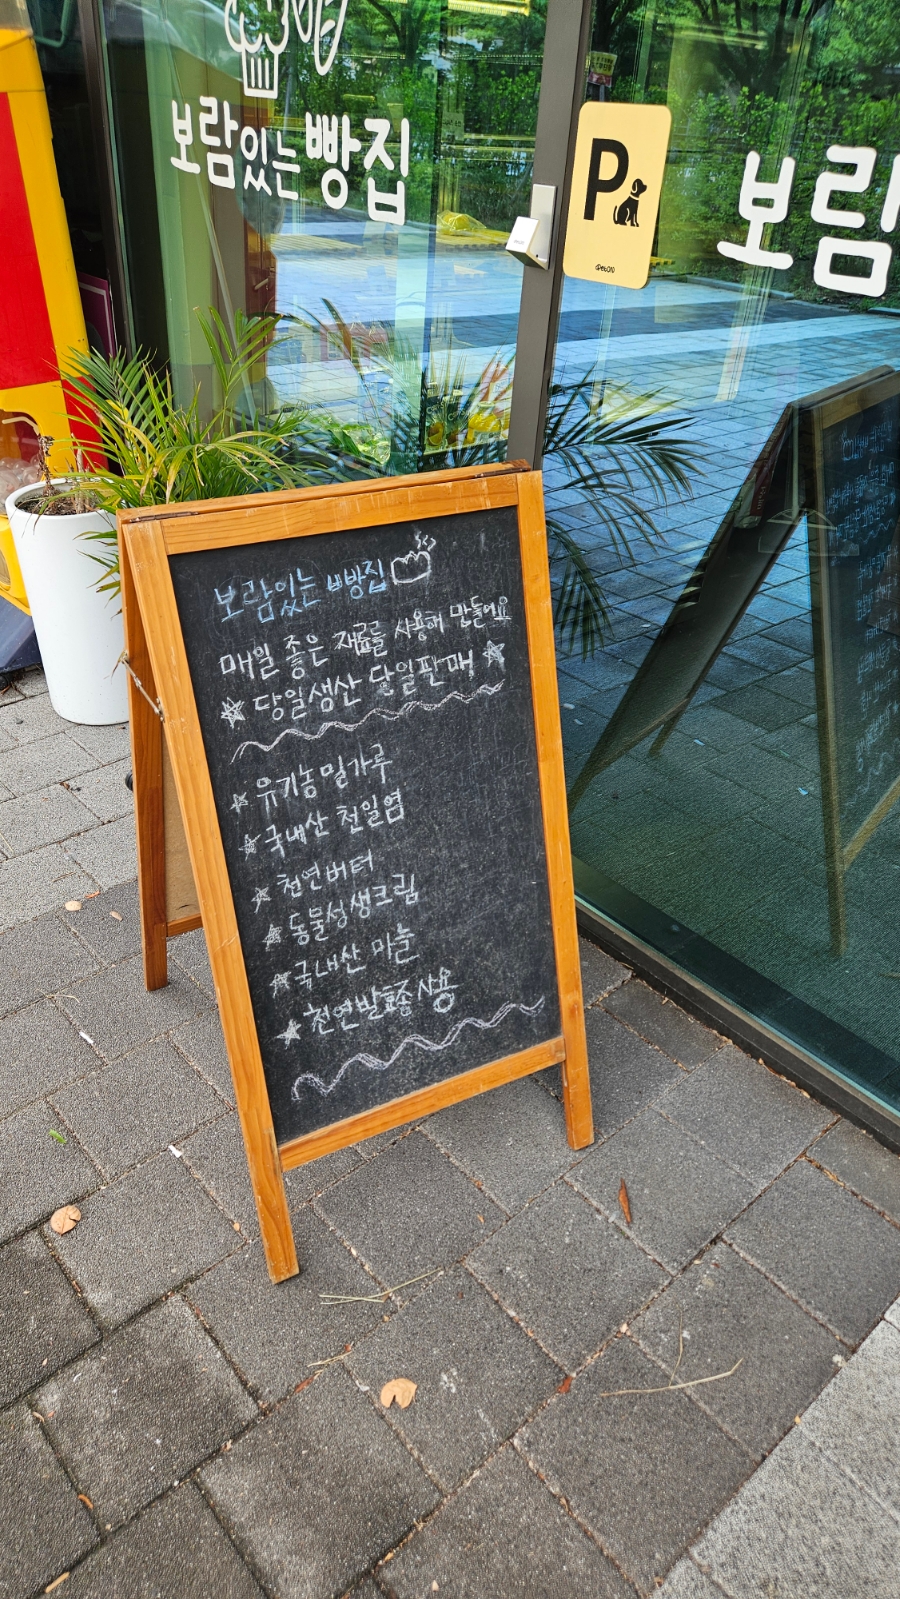 보람있는 빵집
P
보람
보람있는 빵집
매일 좋은 재료를 사용해 만들어요
당일생산 당일판매
유기농밀가루
국내산 천일염
천연버터
동물성생크림
국내산 마늘
천연발효종 사용